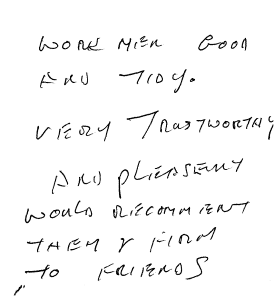 WORK MEN GOOD
AND TIDY.
VERY TRUSTWORTHY
AND PLEASENT
WOULD RECOMMENT
THEM & FIRM
TO FRIENDS